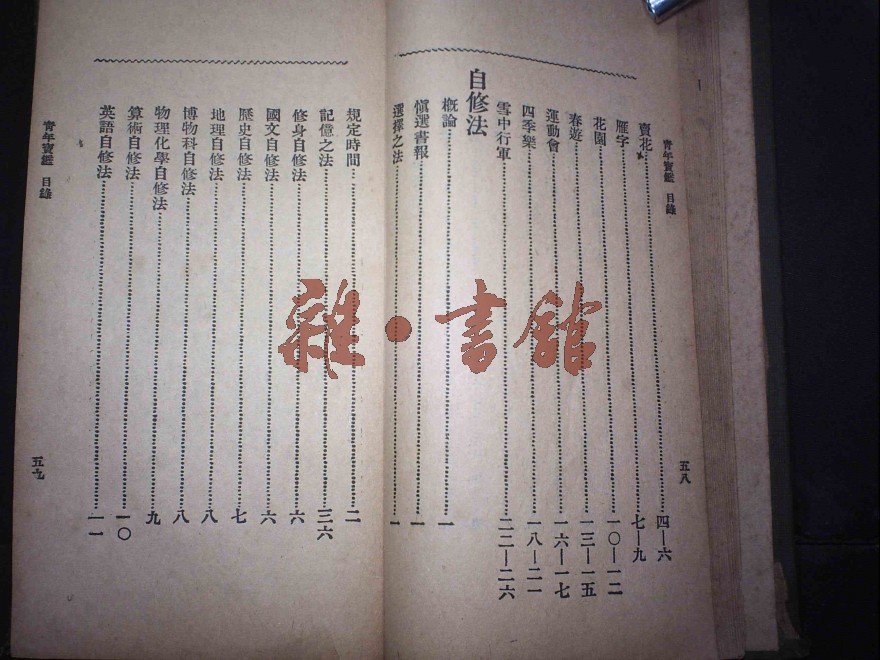 青年寶鑑 目錄 五八
賣花……四—六
雁字……七—九
花園……一〇—一二
春遊……一三—一五
運動會……一六—一七
四季樂……一八—二一
雪中行軍……二二—二六
自修法
概論……一
慎選書報……一
選擇之法……一
規定時間……二
記憶之法……三六
修身自修法……六
國文自修法……六
歷史自修法……七
地理自修法……八
博物科自修法……八
物理化學自修法……九
算術自修法……一〇
英語自修法……一一
青年寶鑑 目錄 五九
雜·書館